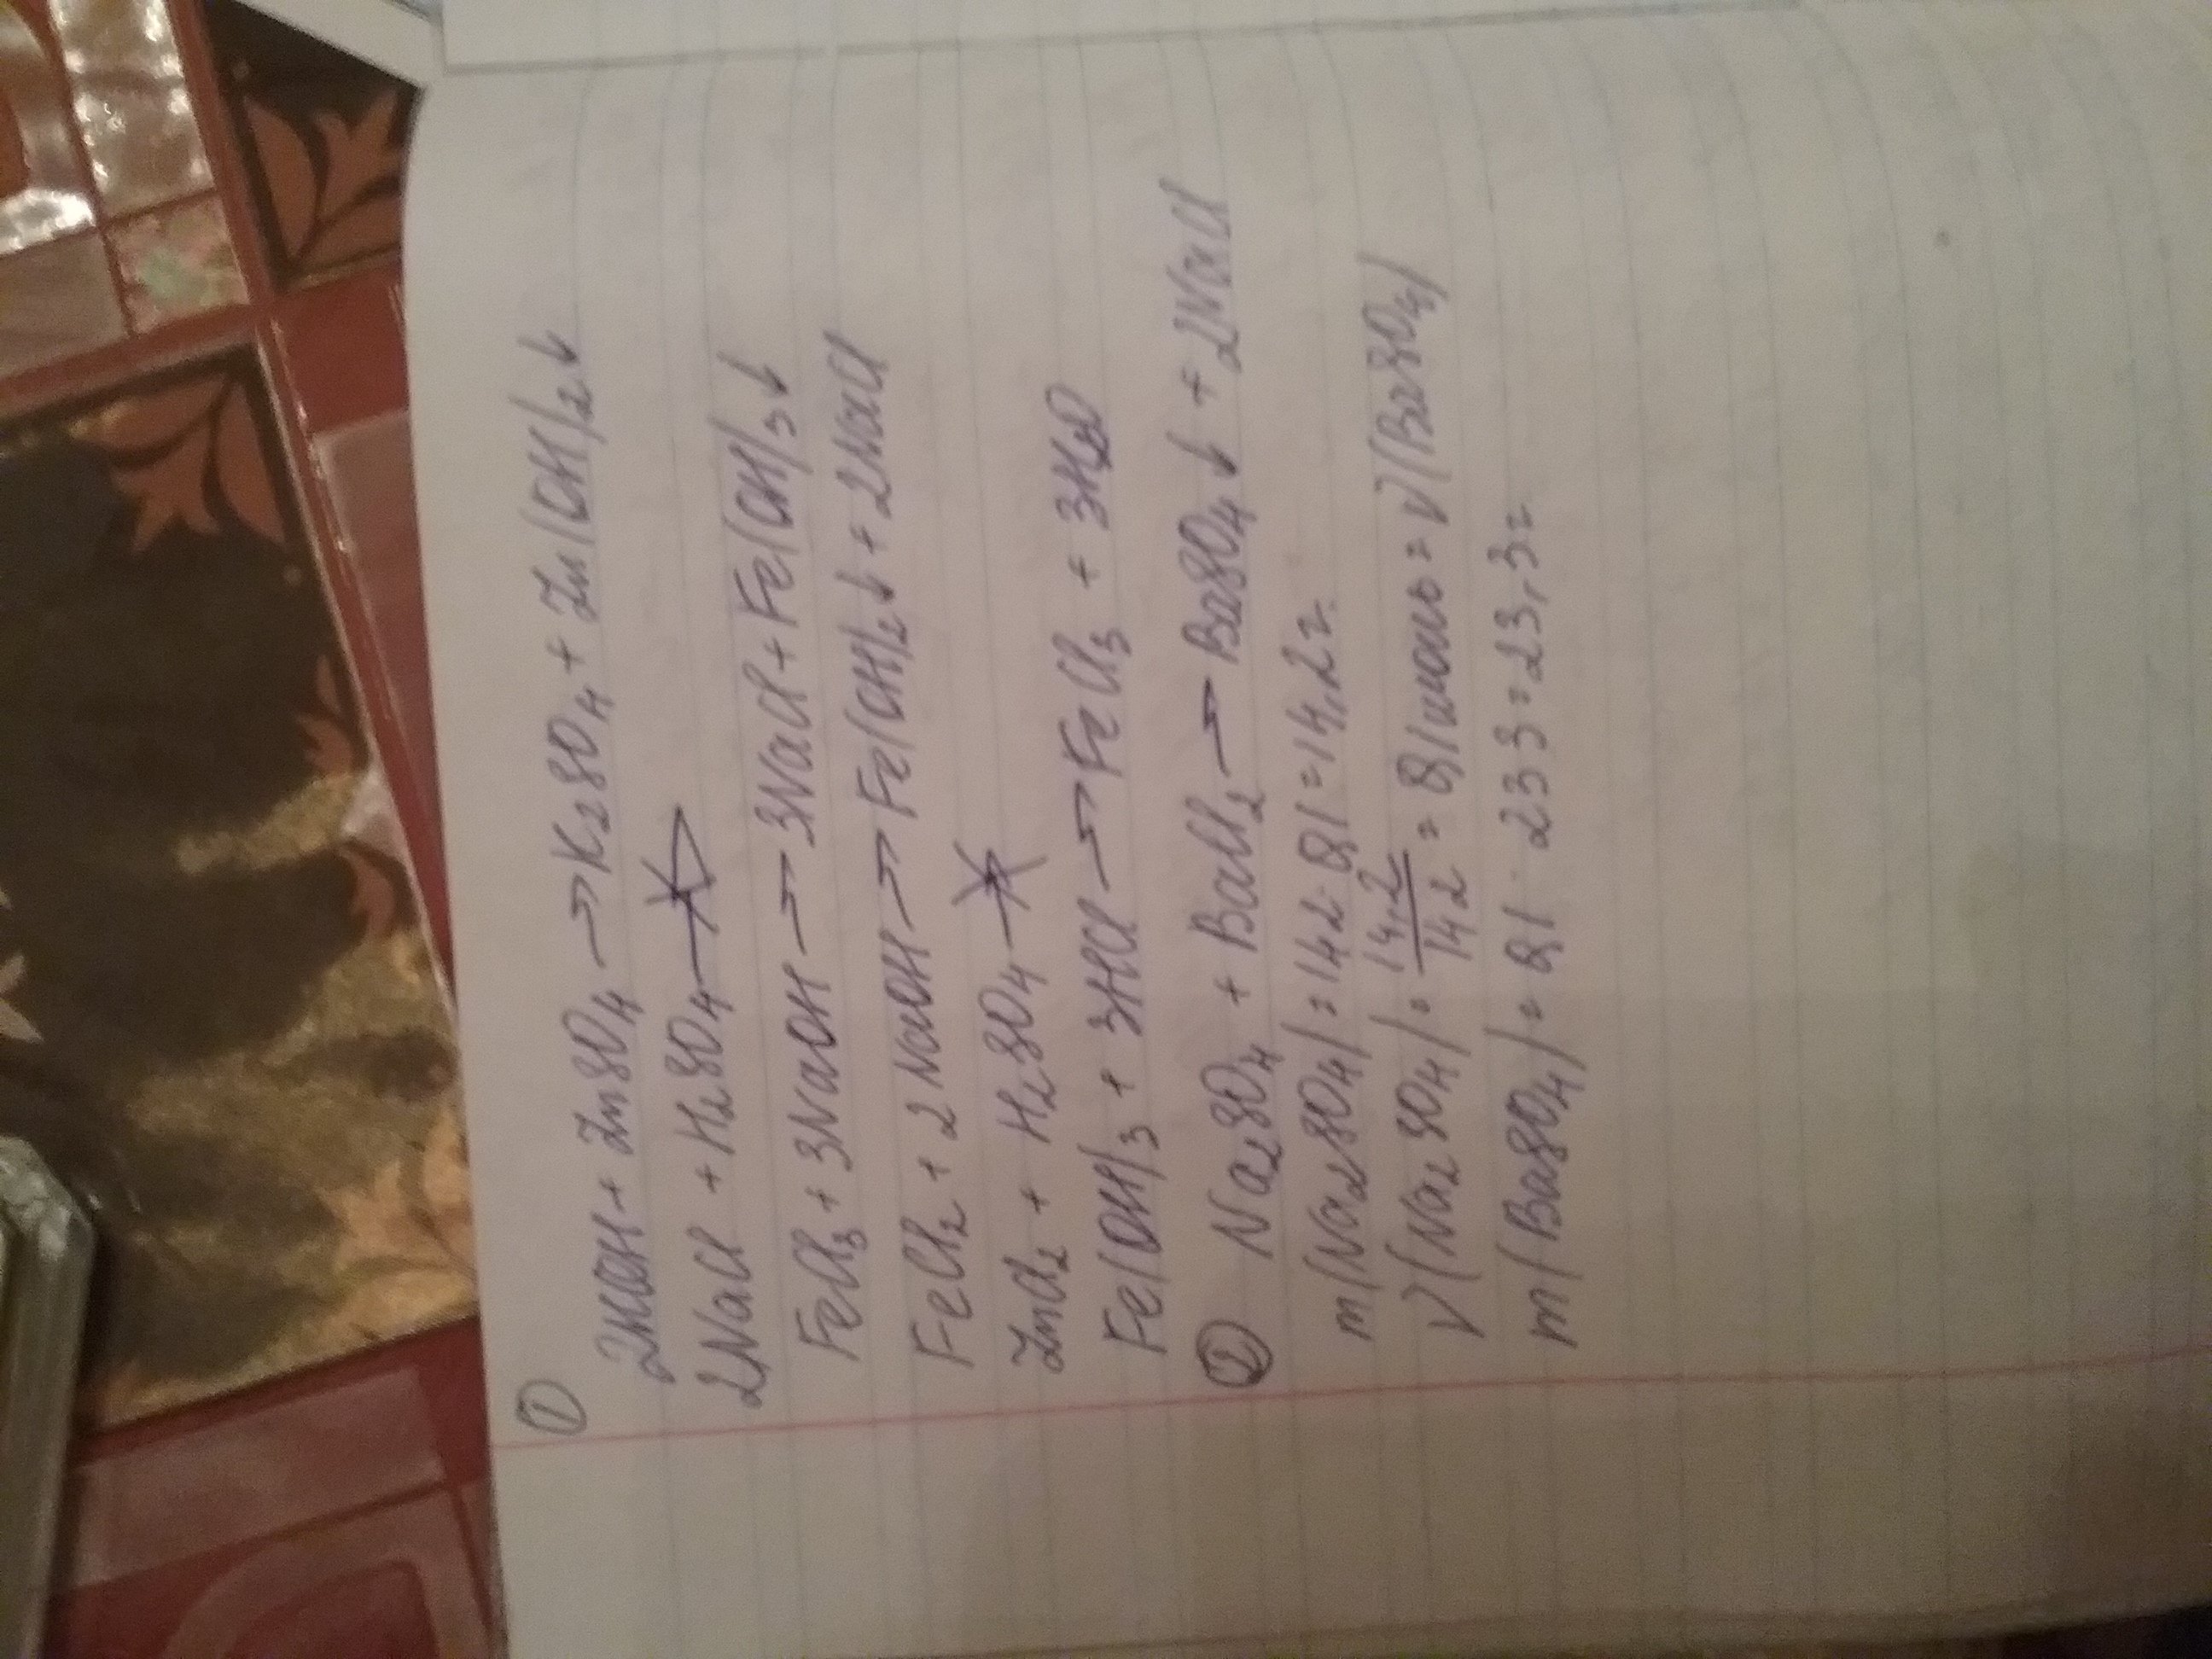 ①
2KOH + ZnSO₄ → K₂SO₄ + Zn(OH)₂↓
2NaCl + H₂SO₄ ↛
FeCl₃ + 3NaOH → 3NaCl + Fe(OH)₃↓
FeCl₂ + 2NaOH → Fe(OH)₂↓ + 2NaCl
ZnCl₂ + H₂SO₄ ↛
Fe(OH)₃ + 3HCl → FeCl₃ + 3H₂O
② Na₂SO₄ + BaCl₂ → BaSO₄↓ + 2NaCl
m(Na₂SO₄) = 142·0,1 = 14,2г.
ν(Na₂SO₄) = 14,2/142 = 0,1моль = ν(BaSO₄)
m(BaSO₄) = 0,1·233 = 23,3г